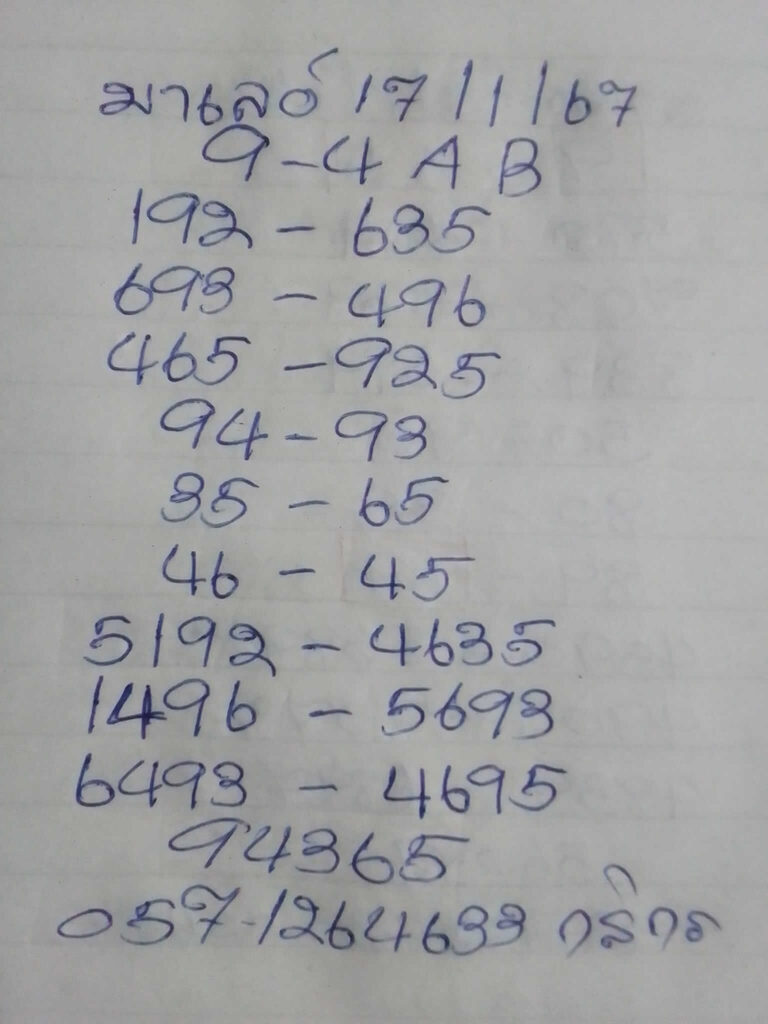 มาเลย์ 17/1/67
9-4 A B
192 - 635
693 - 496
465 - 925
94 - 93
35 - 65
46 - 45
5192 - 4635
1496 - 5693
6493 - 4695
94365
057-1264633 กสิกร